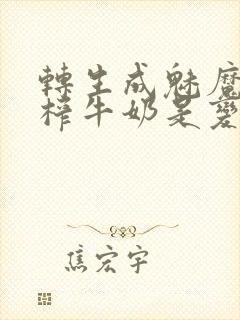 轉生成魅魔
榨牛奶是變
焦宏宇